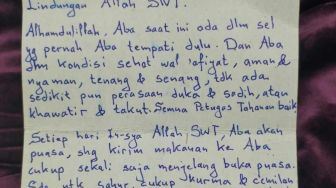 Lindungan Allah SWT.
Alhamdulillah, Aba saat ini ada dlm sel
yg pernah Aba tempati dulu. Dan Aba
dlm kondisi sehat wal 'afiyat, aman &
nyaman, tenang & senang, tdk ada
sedikit pun perasaan duka & sedih, atau
khawatir & takut. Semua Petugas Tahanan baik.
Setiap hari In-sya Allah SWT, Aba akan
puasa, shg kirim makanan ke Aba
cukup sekali saja menjelang buka puasa.
utk sahur, cukup kurma & cemilan